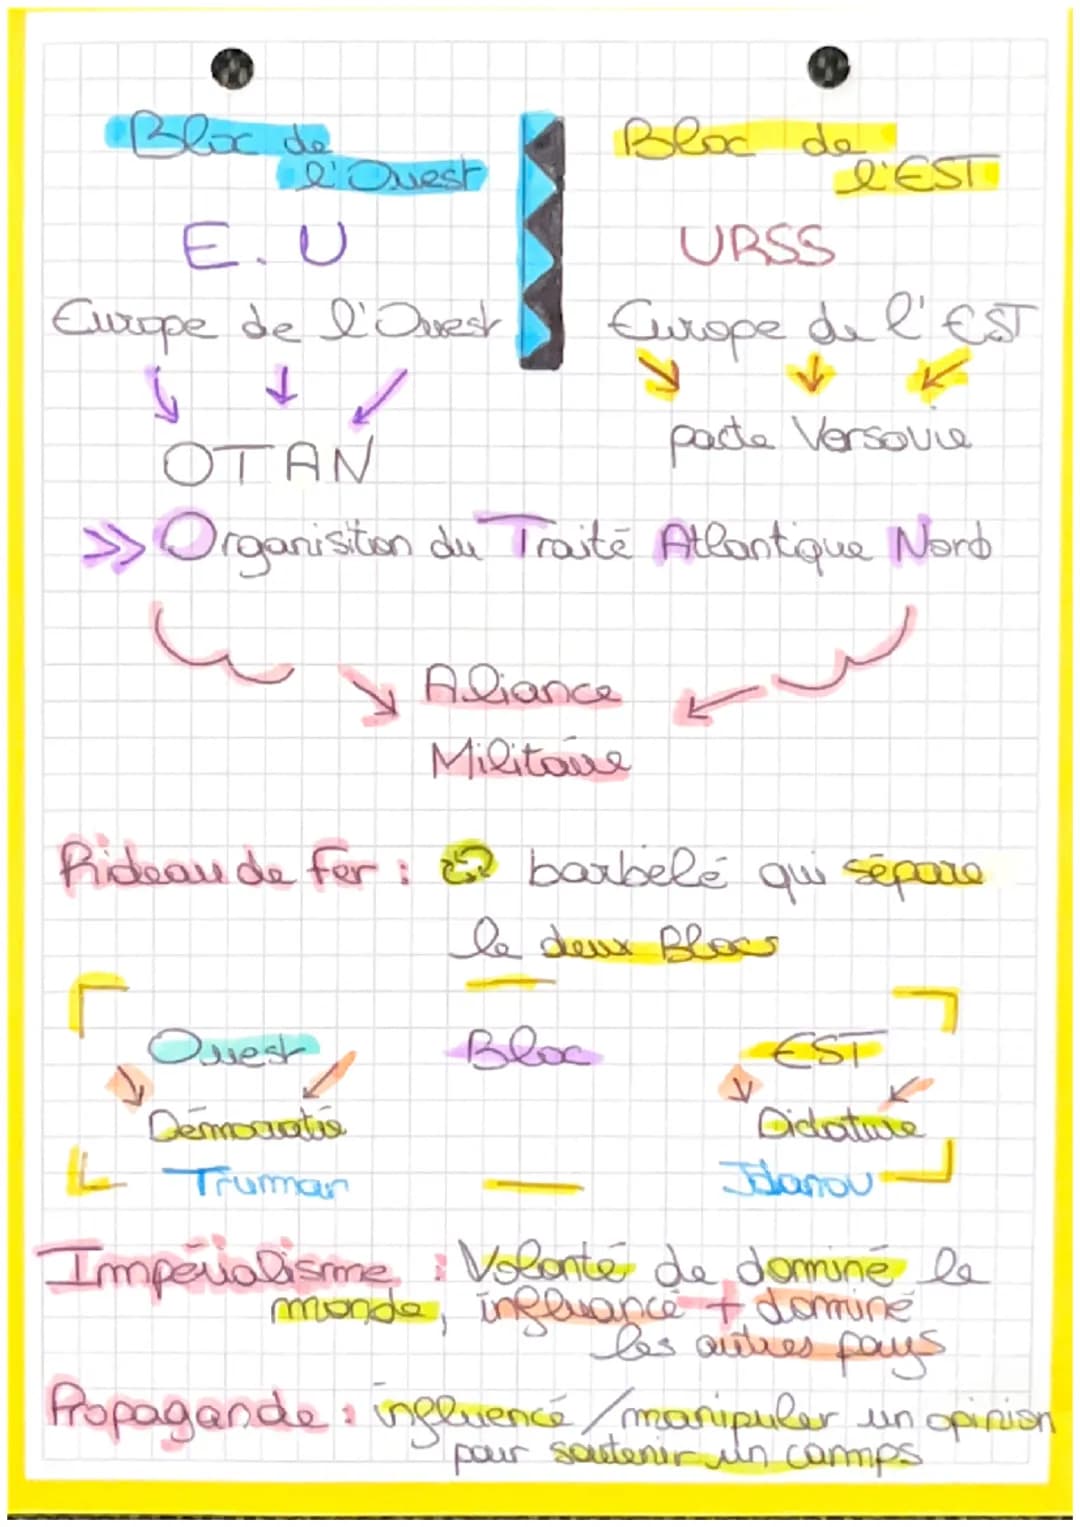 Bloc de
l'Ouest
Bloc de
l'EST
E.U
URSS
Europe de l'Ouest
Europe de l'EST
OTAN
pacte Versovie
>> Organisition du Traité Atlantique Nord
Aliance
Militaire
Rideau de fer : barbelé qui sépare
le deux Blocs
Ouest Bloc EST
Démocratie Dictature
Truman Jdanov
Impérialisme : Volonté de dominé le
monde, influance + dominé
les autres pays
Propagande : influencé / manipuler un opinion
pour soutenir un camps